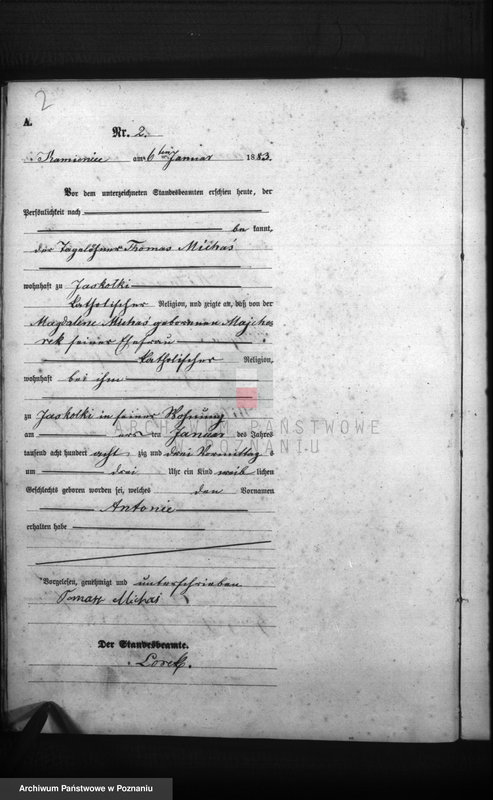 2
A.
Nr. 2.
Kamionice am 6ten Januar 1883.
Vor dem unterzeichneten Standesbeamten erschien heute, der
Persönlichkeit nach
be kannt,
der Tagelöhner Thomas Michaś
wohnhaft zu Jaskolki
katholischer Religion, und zeigte an, daß von der
Magdalene Michaś geborenen Majche
rek seiner Ehefrau
katholischer Religion,
wohnhaft bei ihm
zu Jaskolki in seiner Wohnung
am ersten Januar des Jahres
tausend acht hundert acht zig und drei Vormittag s
um drei Uhr ein Kind weib lichen
Geschlechts geboren worden sei, welches den Vornamen
Antonie
erhalten habe
Vorgelesen, genehmigt und unterschrieben
Tomasz Michaś
Der Standesbeamte.
ARCHIWUM PAŃSTWOWE
W POZNANIU
Archiwum Państwowe w Poznaniu